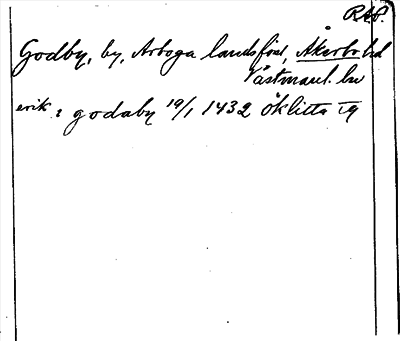 RAP.
Godby, by, Arboga landsförs, Åkerbo hd
Västmanl. län
erik i godaby 19/1 1432 Öklitta